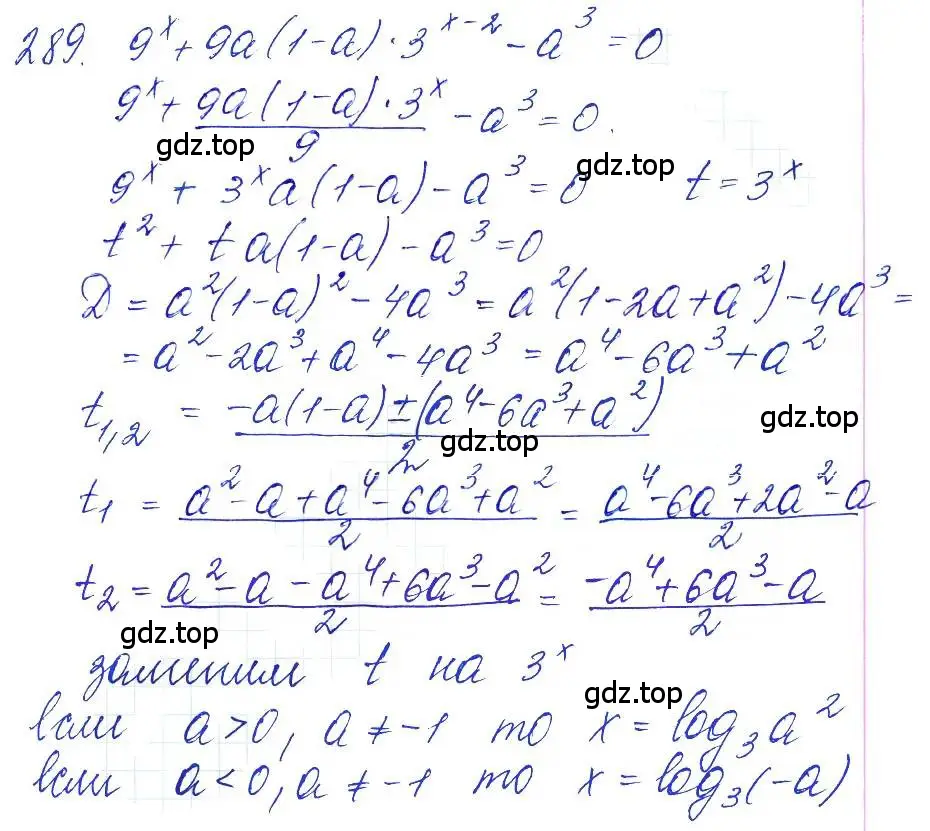 289. 9^x + 9a(1-a)·3^{x-2} - a^3 = 0
9^x + 9a(1-a)·3^x / 9 - a^3 = 0.
gdz.top gdz.top
9^x + 3^x a(1-a) - a^3 = 0 t = 3^x
t^2 + t a(1-a) - a^3 = 0
Д = a^2(1-a)^2 - 4a^3 = a^2(1-2a+a^2) - 4a^3 =
= a^2 - 2a^3 + a^4 - 4a^3 = a^4 - 6a^3 + a^2
t_{1,2} = -a(1-a) ± (a^4 - 6a^3 + a^2) / 2
gdz.top gdz.top
t_1 = a^2 - a + a^4 - 6a^3 + a^2 / 2 = a^4 - 6a^3 + 2a^2 - a / 2
t_2 = a^2 - a - a^4 + 6a^3 - a^2 / 2 = -a^4 + 6a^3 - a / 2
gdz.top
заменим t на 3^x
gdz.top
если a > 0, a ≠ -1 то x = log_3 a^2
если a < 0, a ≠ -1 то x = log_3 (-a)